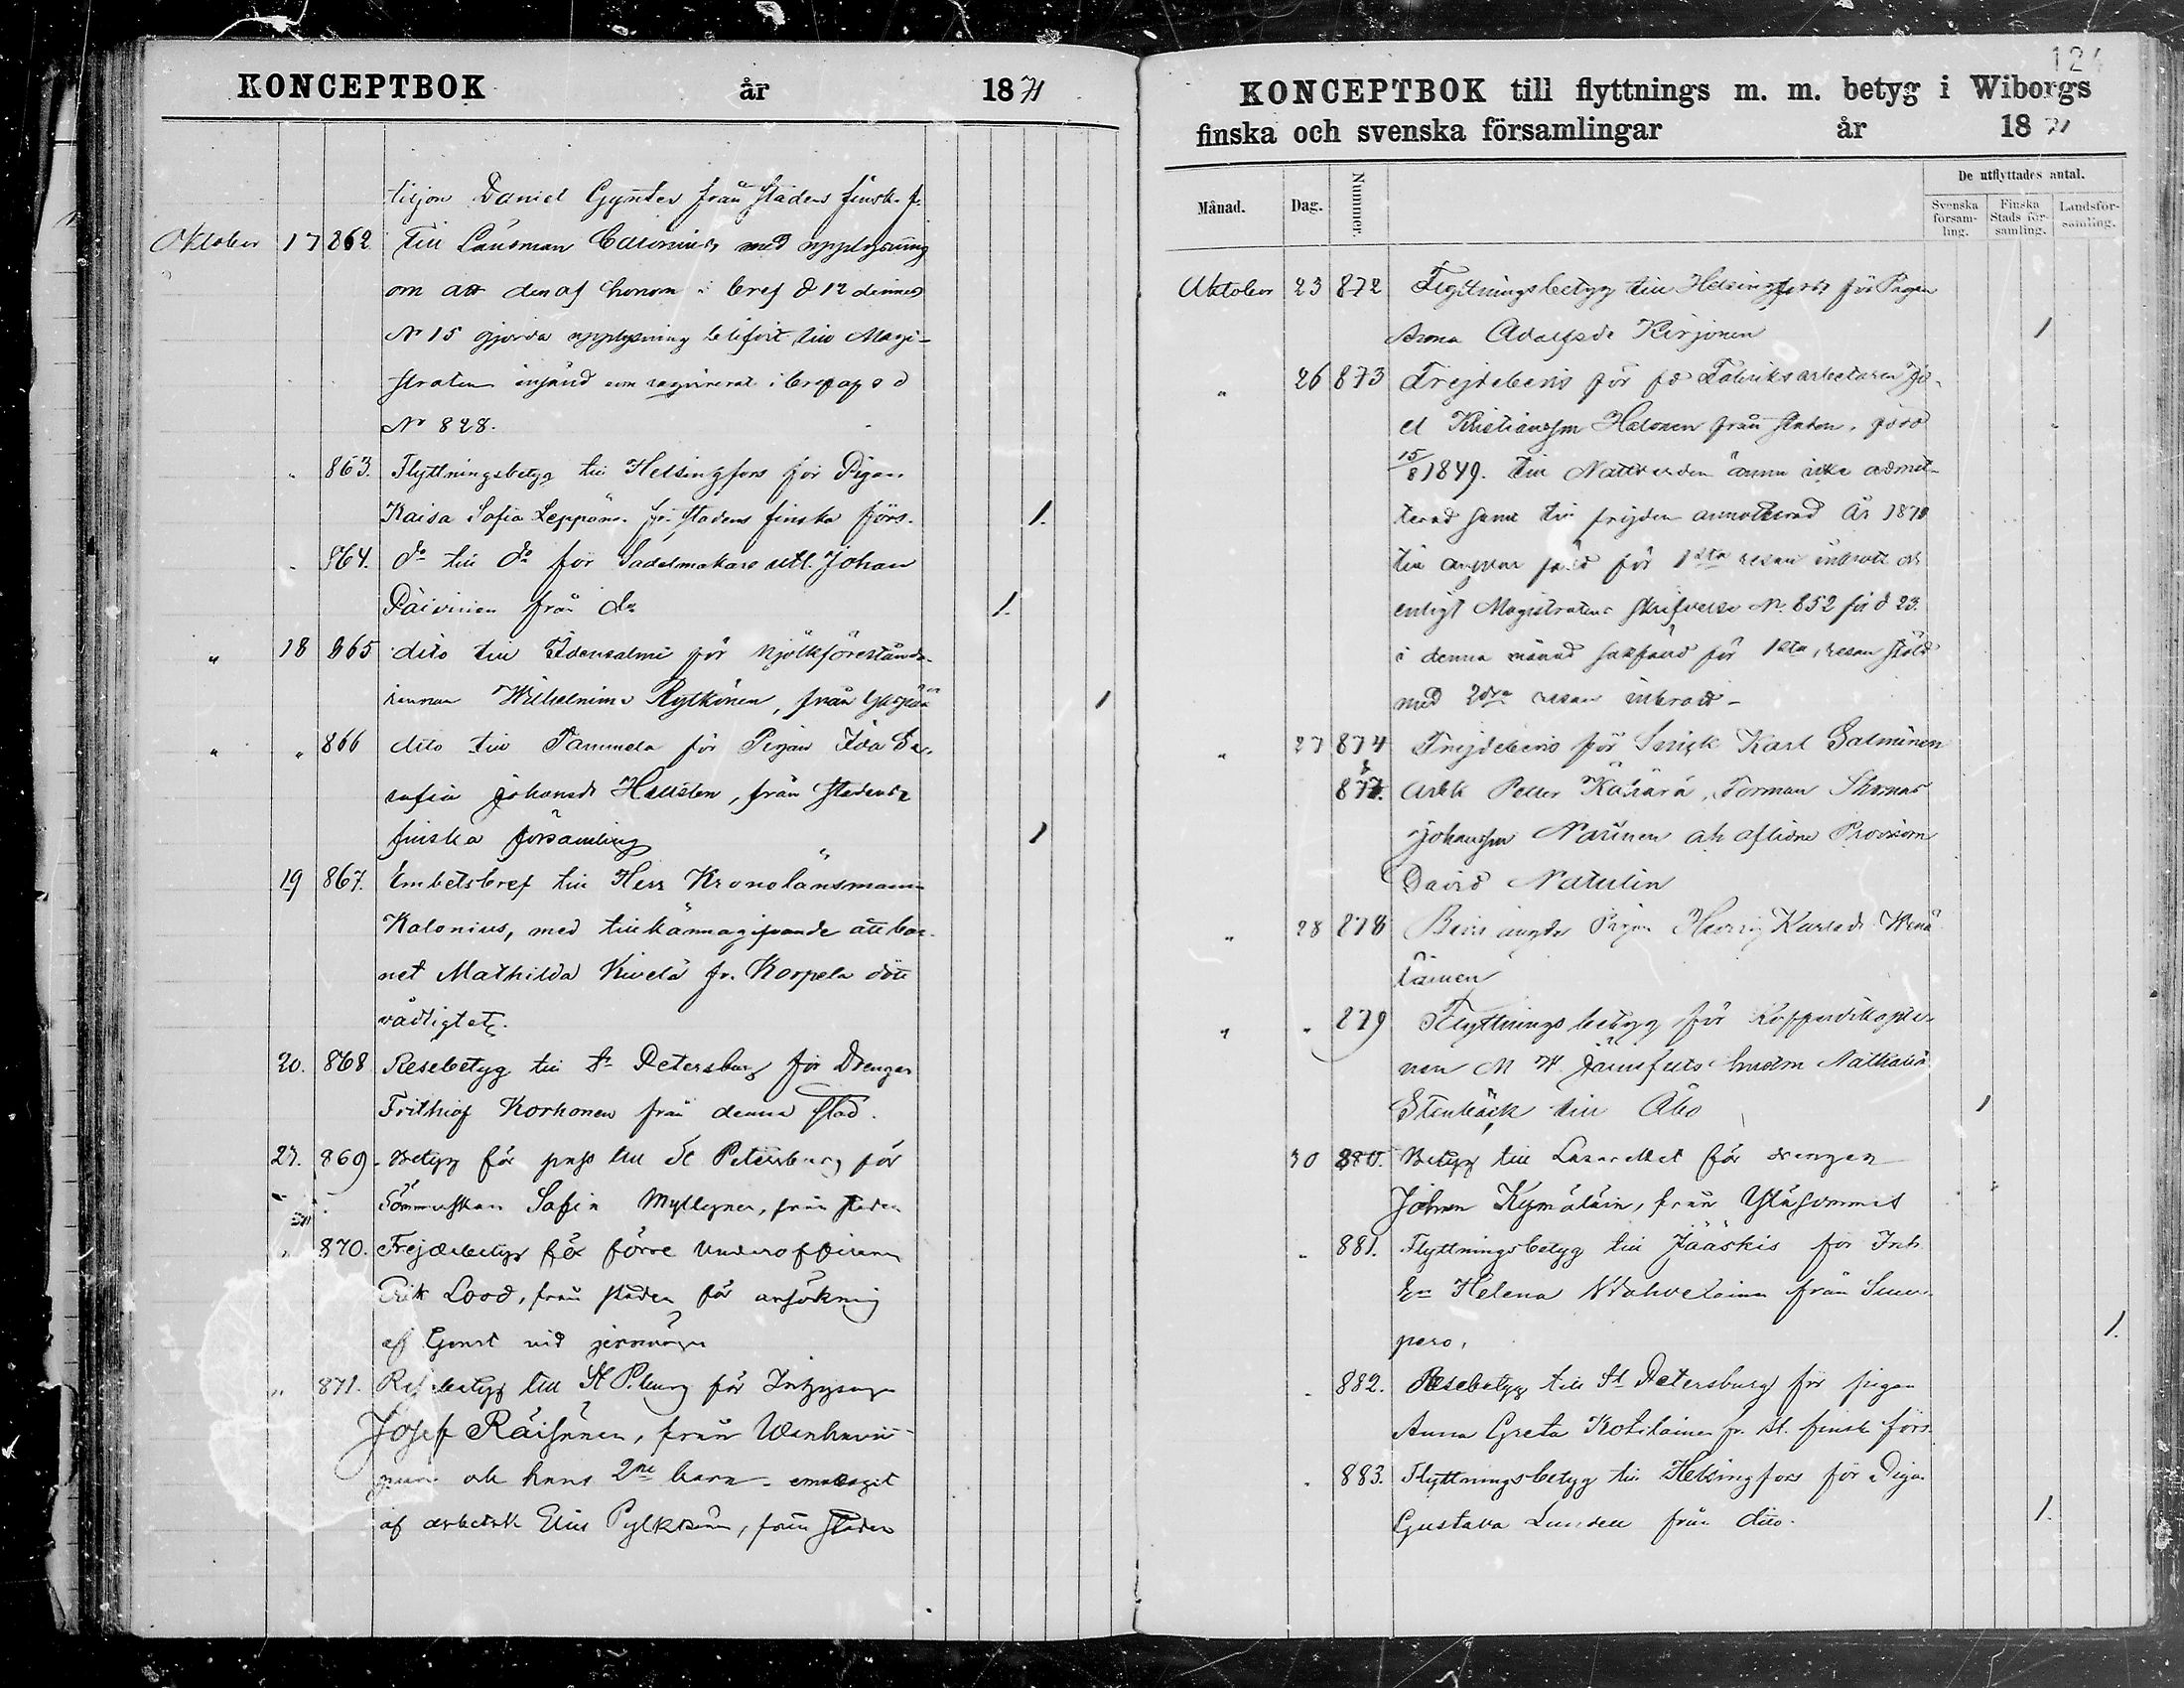 KONCEPTBOK år 1871
tisjon Daniel Gynter från stadens finsk. f.
Oktober 17 862 till Länsman Calonius, med upplysning
om att den af honom i bref d 12 dennes
No 15 gjorda upplysning blifvit till Magi-
straten insänd som requirerat i bref af
No 828.
863. Flyttningsbetyg till Helsingfors för Pigan
Kaisa Sofia Leppänen fr. stadens finska förs. 1.
864. do till do för Sadelmakare utl. Johan
Päivinen från do 1.
" 18 865 dito till Idensalmi för Mjölkförestånda-
rinnan Wilhelmina Rytkönen, från 1
" " 866 dito till Tammela för Pigan Ida
sofia Johansdr Hellsten, från Stadens
finska församling 1
19 867. Embetsbref till Herr Kronolänsmann
Kalonius, med tillkännagifvande att bar-
net Mathilda Kivelä fr. Korpela dött
vådligt etc.
20. 868 Resebetyg till St Petersburg för Drengen
Frithiof Korhonen från denna stad.
23. 869. Betyg för pass till St Petersburg för
Sömmerskan Sofia Myllynen, från staden
" 870. Frejdebetyg för förre Underofficeren
Erik Lood, från staden för ansökning
af tjenst vid jernvägen
" 871. Resebetyg till St P.burg för Inhysingen
Josef Räisänen, från
och hans 2ne barn - emottaget
af arbetsk Elias Pylkkänen, från staden
124
KONCEPTBOK till flyttnings m. m. betyg i Wiborgs
finska och svenska församlingar år 1871
Månad. Dag. Nummer. De utflyttades antal.
Svenska församling. Finska Stads församling. Landsförsamling.
Oktober 23 872 Flyttningsbetyg till Helsingfors för Pigan
Anna Adolfsdr Kirjonen 1
" 26 873 Frejdebevis för fd Fabriksarbetaren Jo-
el Kristiansson Halonen från staden, född
15/8 1849. till Nattvarden ännu icke admit-
terad samt till frejden annoterad År 1870
till ansvar fäld för 1sta resan inbrott och
enligt Magistratens skrifvelse No 852 för d 23.
i denna månad sakfäld för 1sta resan stöld
med 2dra resan inbrott -
" 27 874 Frejdebevis för Karl Salminen
& 877. Arbk Petter Kähärä, Forman Thomas
Johansson Narinen och aflidne Provisorn
David Natulin
" 28 878 Bevis angde Pigan Karlsdr
lainen
" " 879 Flyttningsbetyg för Kofferdikapte-
nen hustru Nathalia
Stenbäck till Åbo 1
30 880. Betyg till Lasarettet för drengen
Johan Kymäläin, från Yläsommes
" 881. Flyttningsbetyg till Jääskis för Inh
En Helena Wahvelainen från
pero. 1.
" 882. Resebetyg till St Petersburg för pigan
Anna Greta Kotilainen fr. st. finsk förs.
" 883. Flyttningsbetyg till Helsingfors för Pigan
Gustava Lundell från dito. 1.